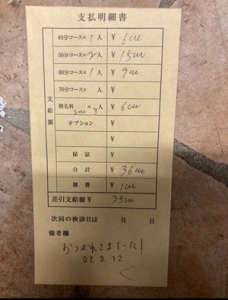 支払明細書
40分コース× 1人 ¥ 6000
50分コース× 2人 ¥ 15000
60分コース× 1人 ¥ 9000
70分コース× 人 ¥
指名料 × 3人 ¥ 6000
オプション ¥
¥
保証 ¥
合計 ¥ 36000
雑費 ¥ 1000
差引支給額¥ 35000
支給額
次回の検診日は 月 日
備考欄
おつかれさまでーす!